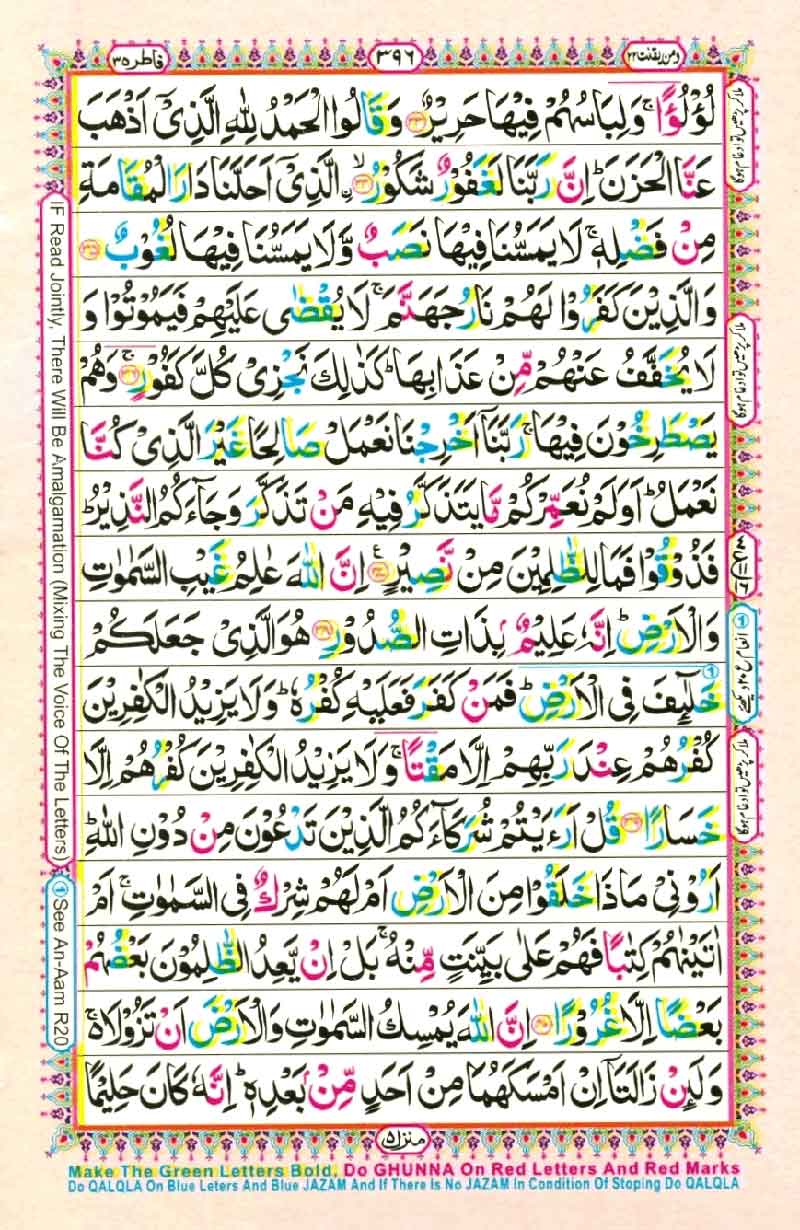 فاطر ٣٥
٣٩٦
ومن يقنت ٢٢
لُؤْلُؤًا ۚ وَلِبَاسُهُمْ فِيْهَا حَرِيْرٌ ﴿٣٣﴾ وَقَالُوا الْحَمْدُ لِلّٰهِ الَّذِىْۤ اَذْهَبَ
عَنَّا الْحَزَنَ ؕ اِنَّ رَبَّنَا لَغَفُوْرٌ شَكُوْرُ ۙ﴿٣٤﴾ الَّذِىْۤ اَحَلَّنَا دَارَ الْمُقَامَةِ
مِنْ فَضْلِهٖ ۚ لَا يَمَسُّنَا فِيْهَا نَصَبٌ وَّلَا يَمَسُّنَا فِيْهَا لُغُوْبٌ ﴿٣٥﴾
وَالَّذِيْنَ كَفَرُوْا لَهُمْ نَارُ جَهَنَّمَ ۚ لَا يُقْضٰى عَلَيْهِمْ فَيَمُوْتُوْا وَ
لَا يُخَفَّفُ عَنْهُمْ مِّنْ عَذَابِهَا ؕ كَذٰلِكَ نَجْزِىْ كُلَّ كَفُوْرٍ ۚ﴿٣٦﴾ وَهُمْ
يَصْطَرِخُوْنَ فِيْهَا ۚ رَبَّنَاۤ اَخْرِجْنَا نَعْمَلْ صَالِحًا غَيْرَ الَّذِىْ كُنَّا
نَعْمَلُ ؕ اَوَلَمْ نُعَمِّرْكُمْ مَّا يَتَذَكَّرُ فِيْهِ مَنْ تَذَكَّرَ وَجَآءَكُمُ النَّذِيْرُ ؕ
فَذُوْقُوْا فَمَا لِلظّٰلِمِيْنَ مِنْ نَّصِيْرٍ ﴿٣٧﴾ اِنَّ اللّٰهَ عٰلِمُ غَيْبِ السَّمٰوٰتِ
وَالْاَرْضِ ؕ اِنَّهٗ عَلِيْمٌۢ بِذَاتِ الصُّدُوْرِ ﴿٣٨﴾ هُوَ الَّذِىْ جَعَلَكُمْ
خَلٰٓئِفَ فِى الْاَرْضِ ؕ فَمَنْ كَفَرَ فَعَلَيْهِ كُفْرُهٗ ؕ وَلَا يَزِيْدُ الْكٰفِرِيْنَ
كُفْرُهُمْ عِنْدَ رَبِّهِمْ اِلَّا مَقْتًا ۚ وَلَا يَزِيْدُ الْكٰفِرِيْنَ كُفْرُهُمْ اِلَّا
خَسَارًا ﴿٣٩﴾ قُلْ اَرَءَيْتُمْ شُرَكَآءَكُمُ الَّذِيْنَ تَدْعُوْنَ مِنْ دُوْنِ اللّٰهِ ؕ
اَرُوْنِىْ مَاذَا خَلَقُوْا مِنَ الْاَرْضِ اَمْ لَهُمْ شِرْكٌ فِى السَّمٰوٰتِ ۚ اَمْ
اٰتَيْنٰهُمْ كِتٰبًا فَهُمْ عَلٰى بَيِّنَتٍ مِّنْهُ ۚ بَلْ اِنْ يَّعِدُ الظّٰلِمُوْنَ بَعْضُهُمْ
بَعْضًا اِلَّا غُرُوْرًا ﴿٤٠﴾ اِنَّ اللّٰهَ يُمْسِكُ السَّمٰوٰتِ وَالْاَرْضَ اَنْ تَزُوْلَا ۚ
وَلَئِنْ زَالَتَاۤ اِنْ اَمْسَكَهُمَا مِنْ اَحَدٍ مِّنْۢ بَعْدِهٖ ؕ اِنَّهٗ كَانَ حَلِيْمًا
منزل ٥
IF Read Jointly, There Will Be Amalgamation (Mixing The Voice Of The Letters)
① See An-Aam R20
Make The Green Letters Bold, Do GHUNNA On Red Letters And Red Marks
Do QALQLA On Blue Leters And Blue JAZAM And If There Is No JAZAM In Condition Of Stoping Do QALQLA